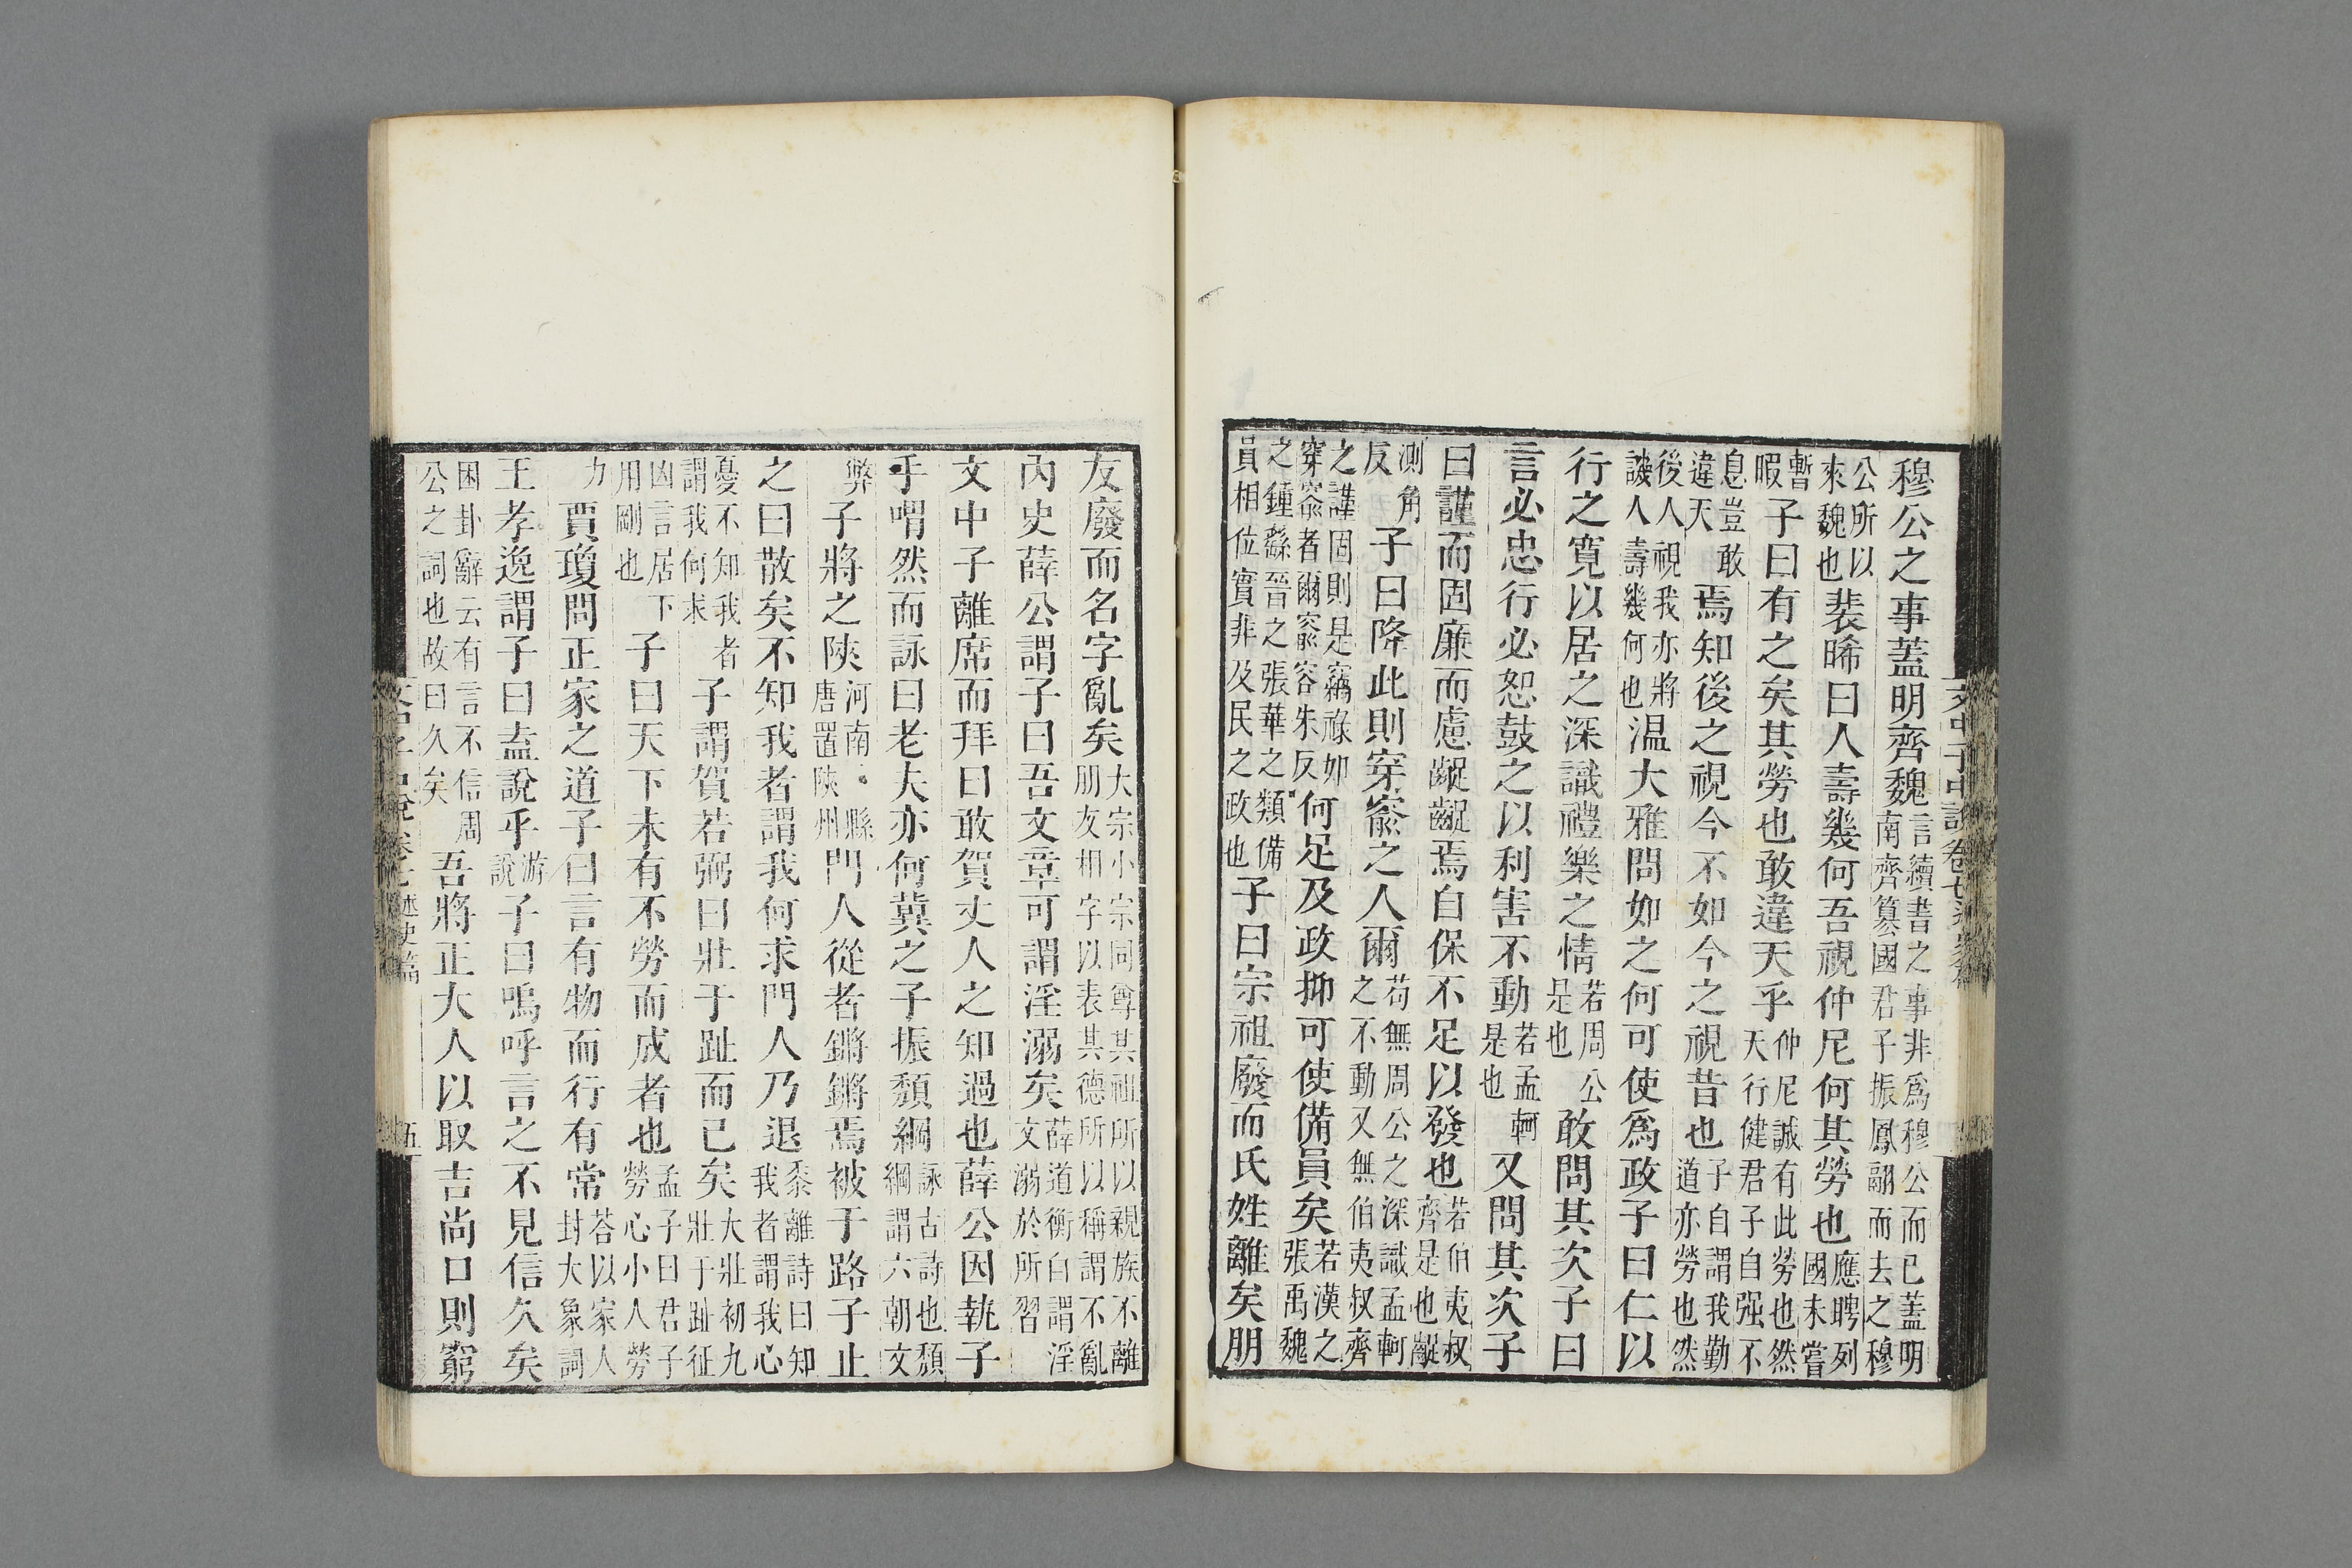 穆公之事蓋明齊魏言續書之事非爲穆公而已蓋明南齊篡國君子振鳳翮而去之穆
公所以來魏也裴晞曰人壽幾何吾視仲尼何其勞也應聘列國未嘗
暫暇子曰有之矣其勞也敢違天乎仲尼誠有此勞也然天行健君子自强不
息豈敢違天焉知後之視今不如今之視昔也子自謂我勤道亦勞也然
後人視我亦將譏人壽幾何也温大雅問如之何可使爲政子曰仁以
行之寬以居之深識禮樂之情若周公是也敢問其次子曰
言必忠行必恕鼓之以利害不動若孟軻是也又問其次子
曰謹而固廉而慮齪齪焉自保不足以發也若伯夷叔齊是也齪
測角反子曰降此則穿窬之人爾苟無周公之深識孟軻之不動又無伯夷叔齊
之謹固則是竊祿如穿窬者爾窬容朱反何足及政抑可使備員矣若漢之張禹魏
之鍾繇晉之張華之類備員相位實非及民之政也子曰宗祖廢而氏姓離矣朋
文中子中說卷七述史篇
友廢而名字亂矣大宗小宗同尊其祖所以親族不離朋友相字以表其德所以稱謂不亂
內史薛公謂子曰吾文章可謂淫溺矣薛道衡自謂淫文溺於所習
文中子離席而拜曰敢賀丈人之知過也薛公因執子
手喟然而詠曰老夫亦何冀之子振頹綱詠古詩也頹綱謂六朝文
弊子將之陝河南縣唐置陝州門人從者鏘鏘焉被于路子止
之曰散矣不知我者謂我何求門人乃退黍離詩曰知我者謂我心
憂不知我者謂我何求子謂賀若弼曰壯于趾而已矣大壯初九壯于趾征
凶言居下用剛也子曰天下未有不勞而成者也孟子曰君子勞心小人勞
力賈瓊問正家之道子曰言有物而行有常荅以家人封大象詞
王孝逸謂子曰盍說乎游說子曰嗚呼言之不見信久矣
困卦辭云有言不信周公之詞也故曰久矣吾將正大人以取吉尚口則窮
文中子中說卷七述史篇
五